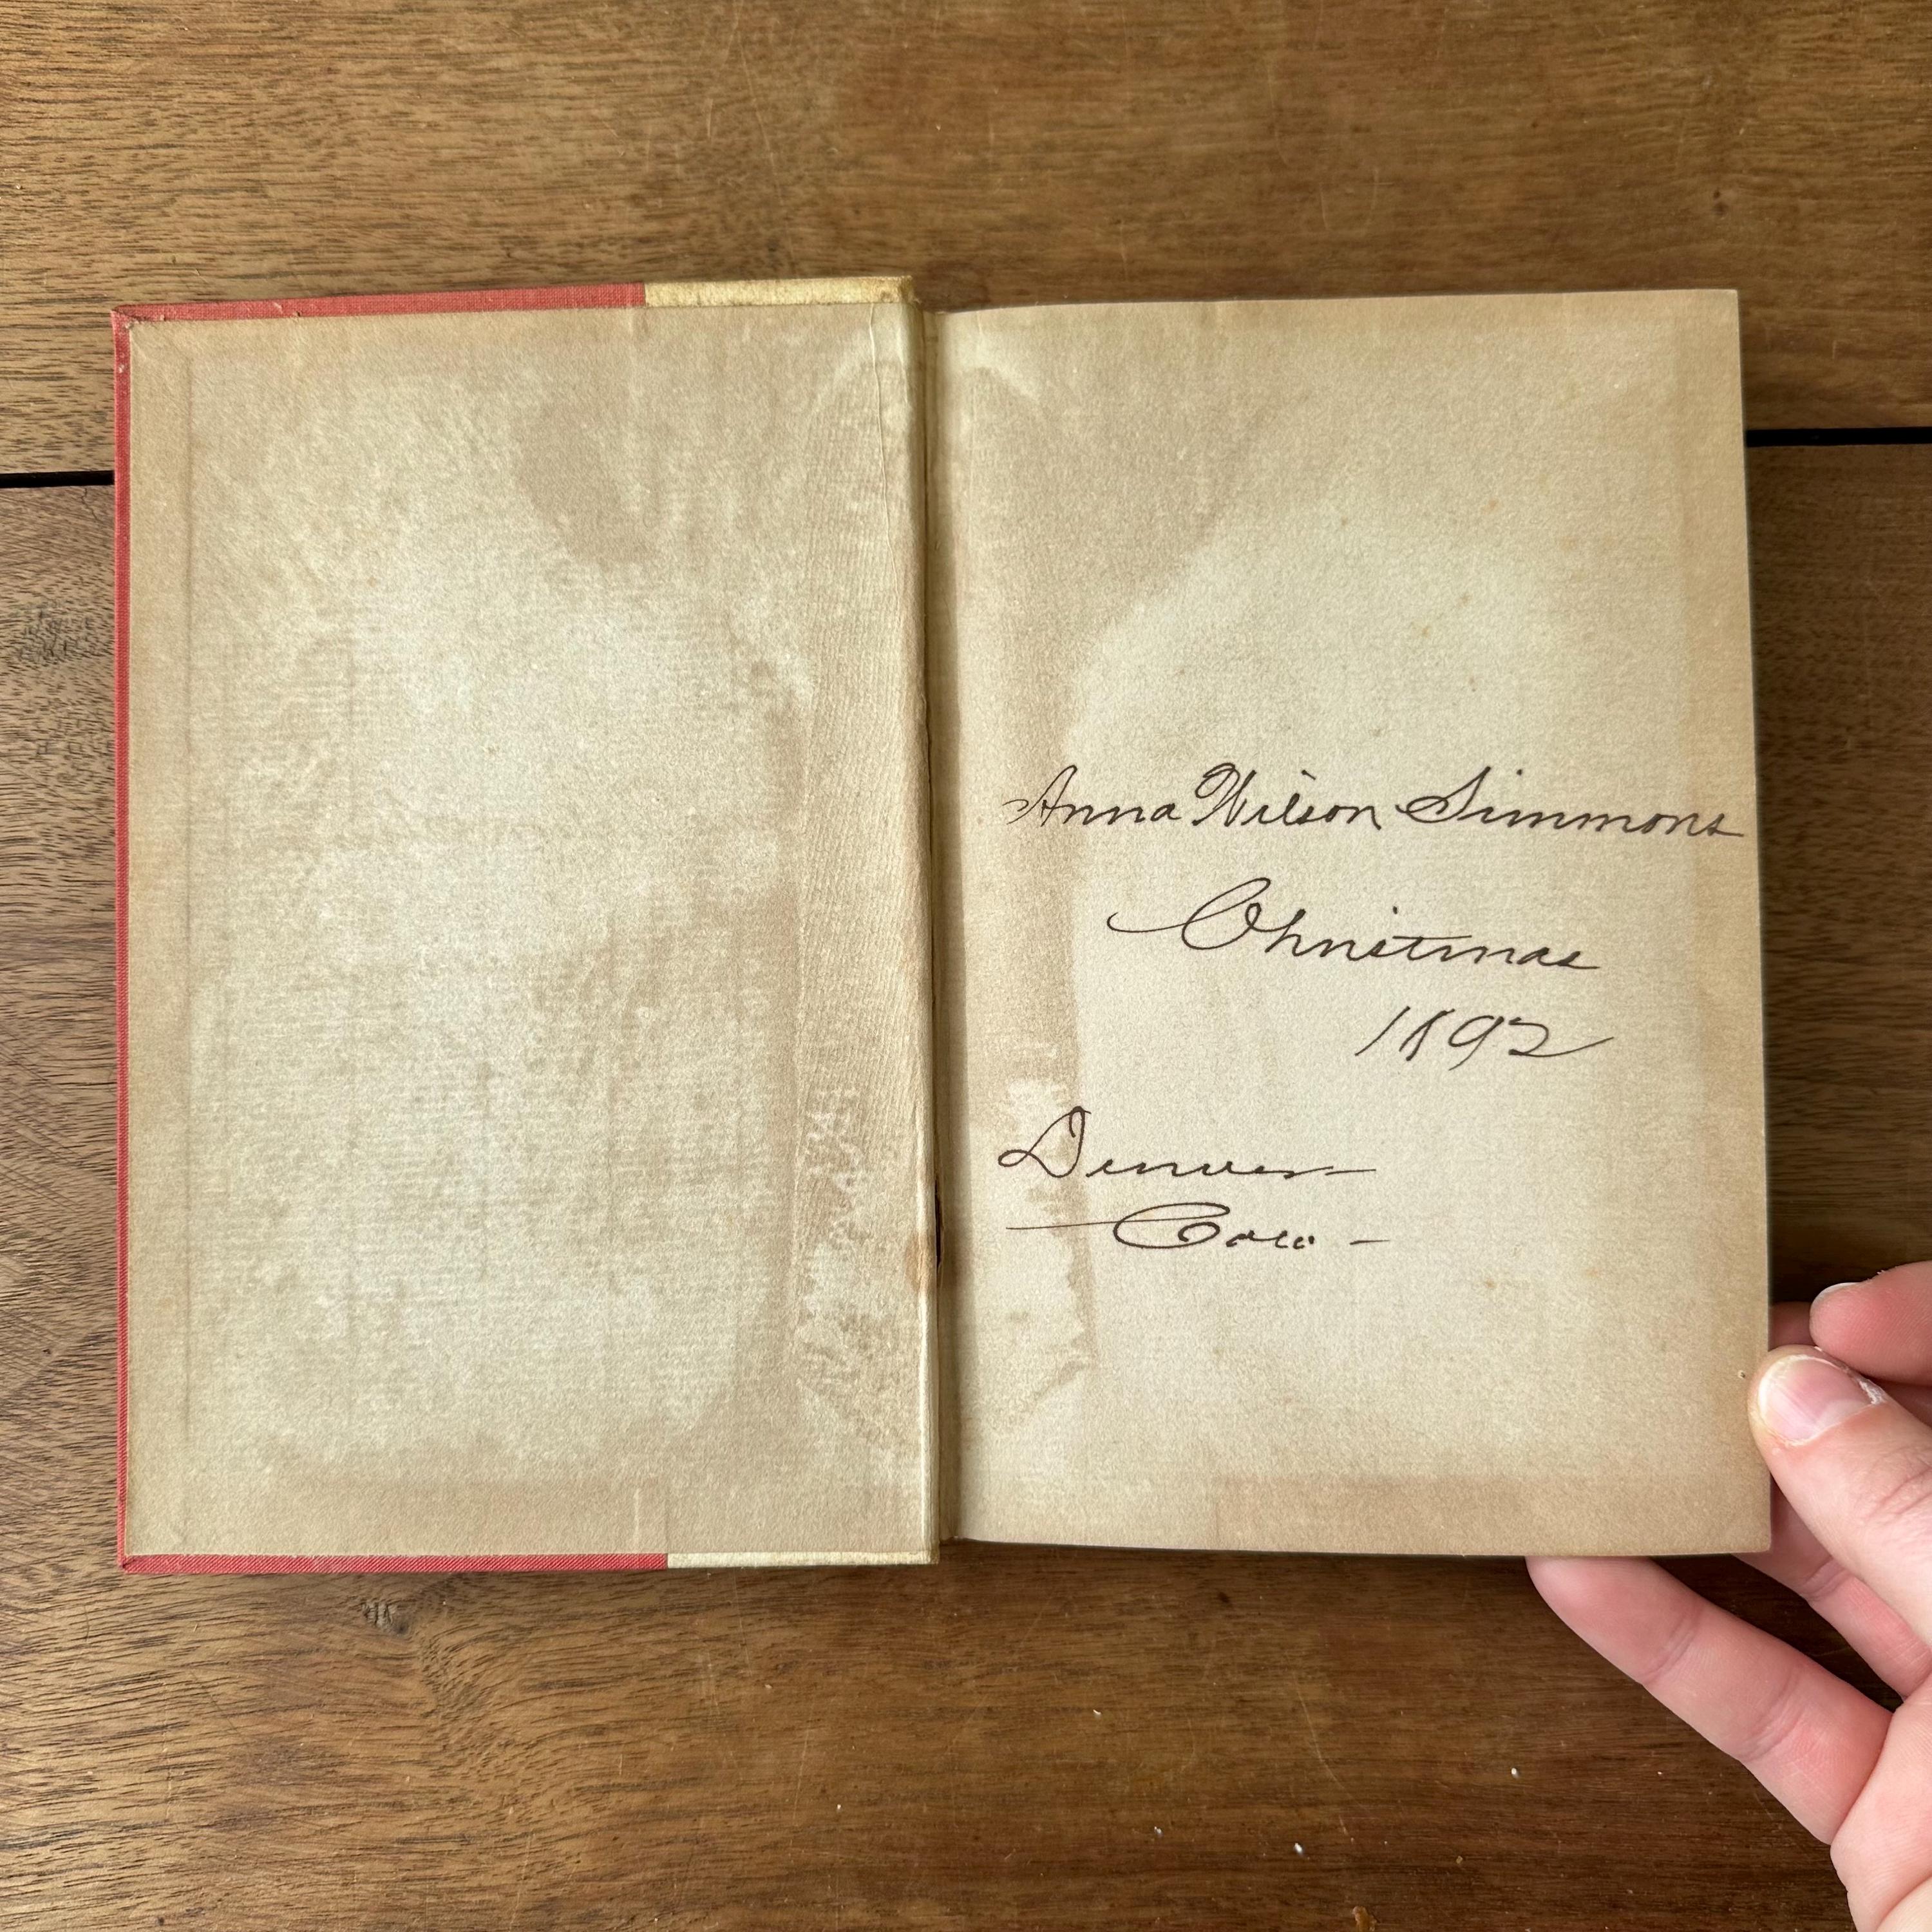 Anna Wilson Simmons
Christmas
1892
Denver
Colo -